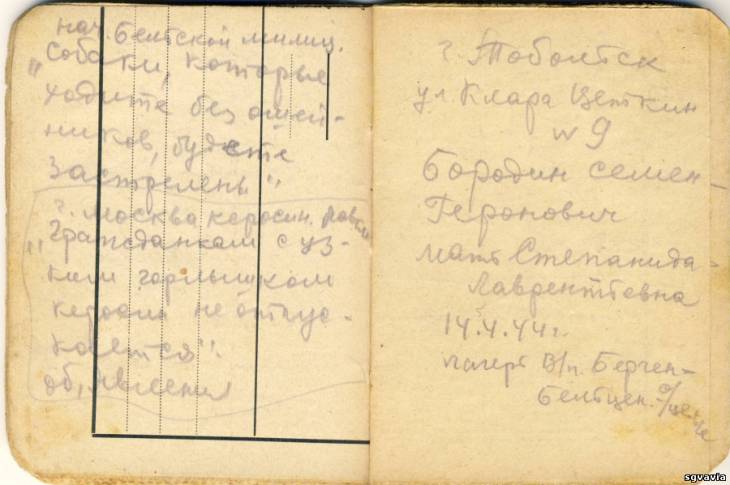 нач. Белтской милиц.
"Собаки, которые
ходите без ошей-
ников, будете
застрелены".
г. Москва керосин. лавка
"Гражданкам с уз-
ким горлышком
керосин не отпус-
кается".
объявления
г. Тобольск
ул. Клара Цеткин
№ 9
Бородин Семен
Геронович
мать Степанида
Лаврентьевна
14.4.44г.
лагерь В/п. Берген-
Бельцен.
sgvavia